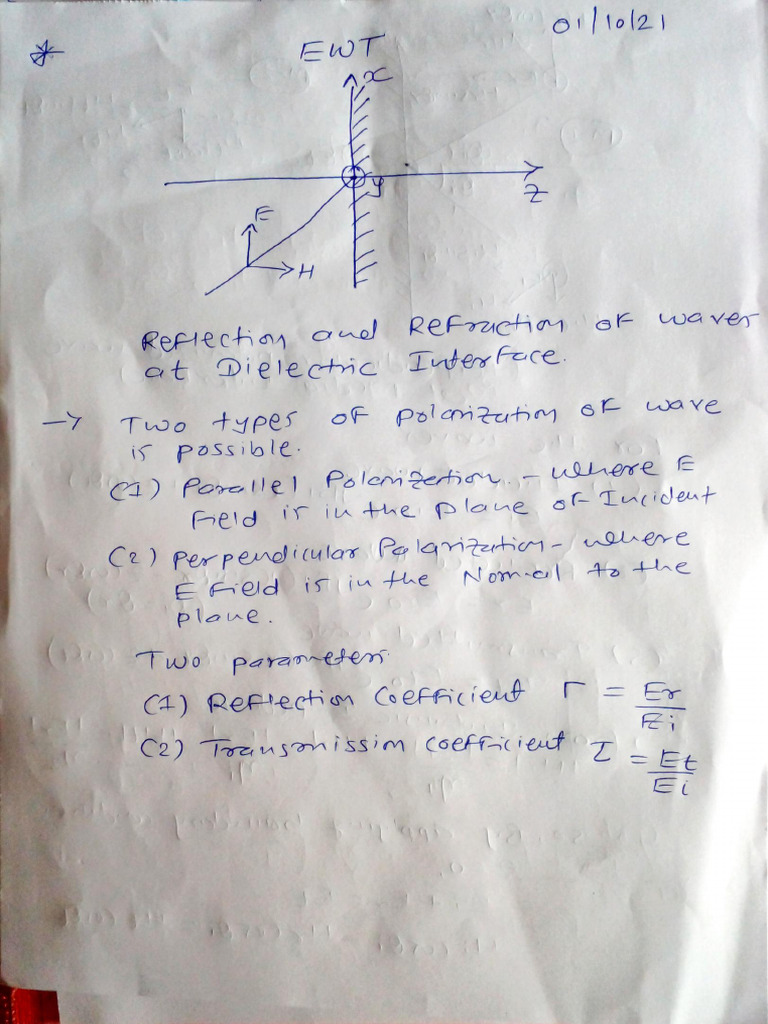 01/10/21
EWT
x
y
Z
E
H
Reflection and Refraction of waves
at Dielectric Interface.
→ Two types of polarization of wave
is possible.
(1) Parallel Polarization - where E
Field is in the plane of Incident
(2) Perpendicular Polarization - where
E Field is in the Normal to the
plane.
Two parameters
(1) Reflection Coefficient Γ = Er/Ei
(2) Transmission coefficient τ = Et/Ei